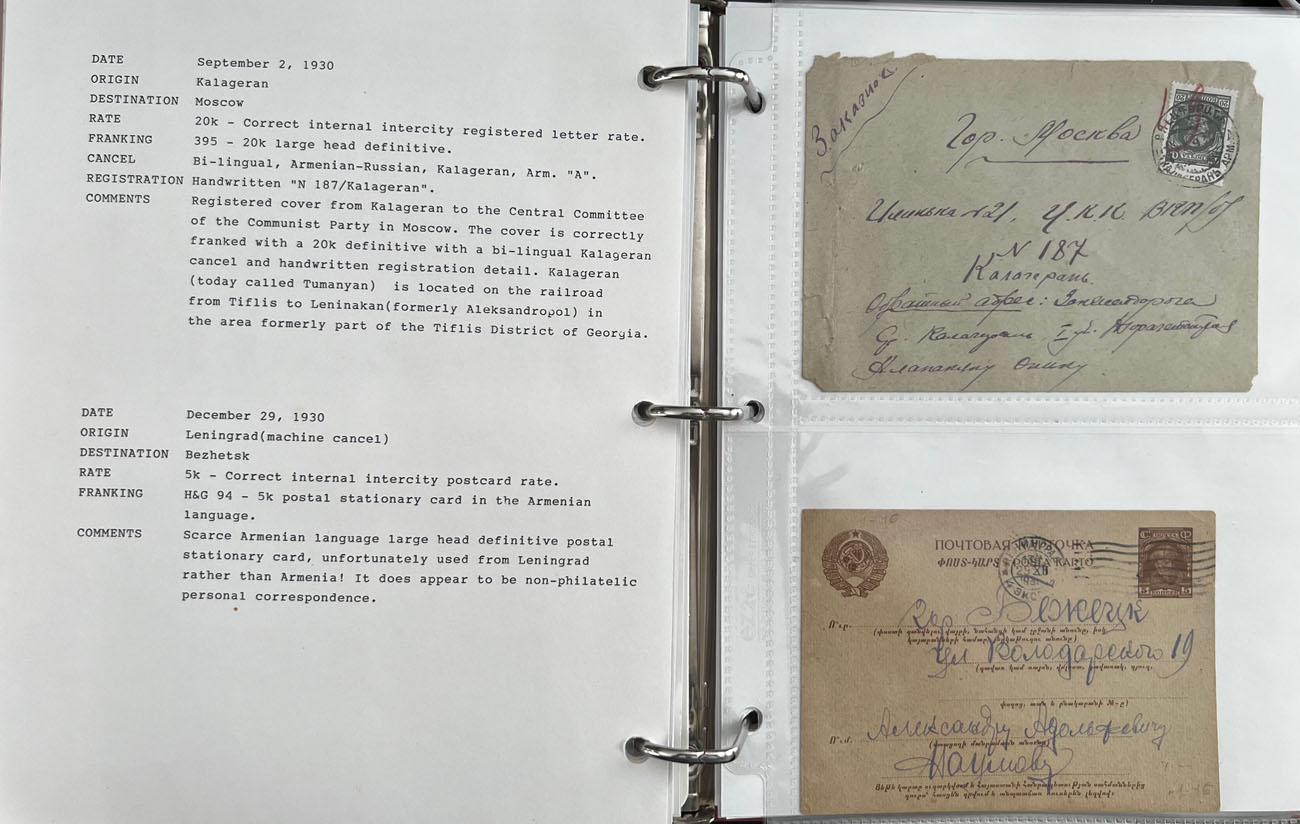 DATE September 2, 1930
ORIGIN Kalageran
DESTINATION Moscow
RATE 20k - Correct internal intercity registered letter rate.
FRANKING 395 - 20k large head definitive.
CANCEL Bi-lingual, Armenian-Russian, Kalageran, Arm. "A".
REGISTRATION Handwritten "N 187/Kalageran".
COMMENTS Registered cover from Kalageran to the Central Committee
of the Communist Party in Moscow. The cover is correctly
franked with a 20k definitive with a bi-lingual Kalageran
cancel and handwritten registration detail. Kalageran
(today called Tumanyan) is located on the railroad
from Tiflis to Leninakan(formerly Aleksandropol) in
the area formerly part of the Tiflis District of Georgia.
DATE December 29, 1930
ORIGIN Leningrad(machine cancel)
DESTINATION Bezhetsk
RATE 5k - Correct internal intercity postcard rate.
FRANKING H&G 94 - 5k postal stationary card in the Armenian
language.
COMMENTS Scarce Armenian language large head definitive postal
stationary card, unfortunately used from Leningrad
rather than Armenia! It does appear to be non-philatelic
personal correspondence.
Заказное
Гор. Москва
Илинька №21, Ц.К.К. ВКП/б/
N 187
Калагерань
Обратный адрес:
ПОЧТОВАЯ КАРТОЧКА
ՓՈՍՏ-ՔԱՐՏ POŜTA KARTO
Гор Бежецк
ул Володарского 19
Александру Адольфовичу
Наумову